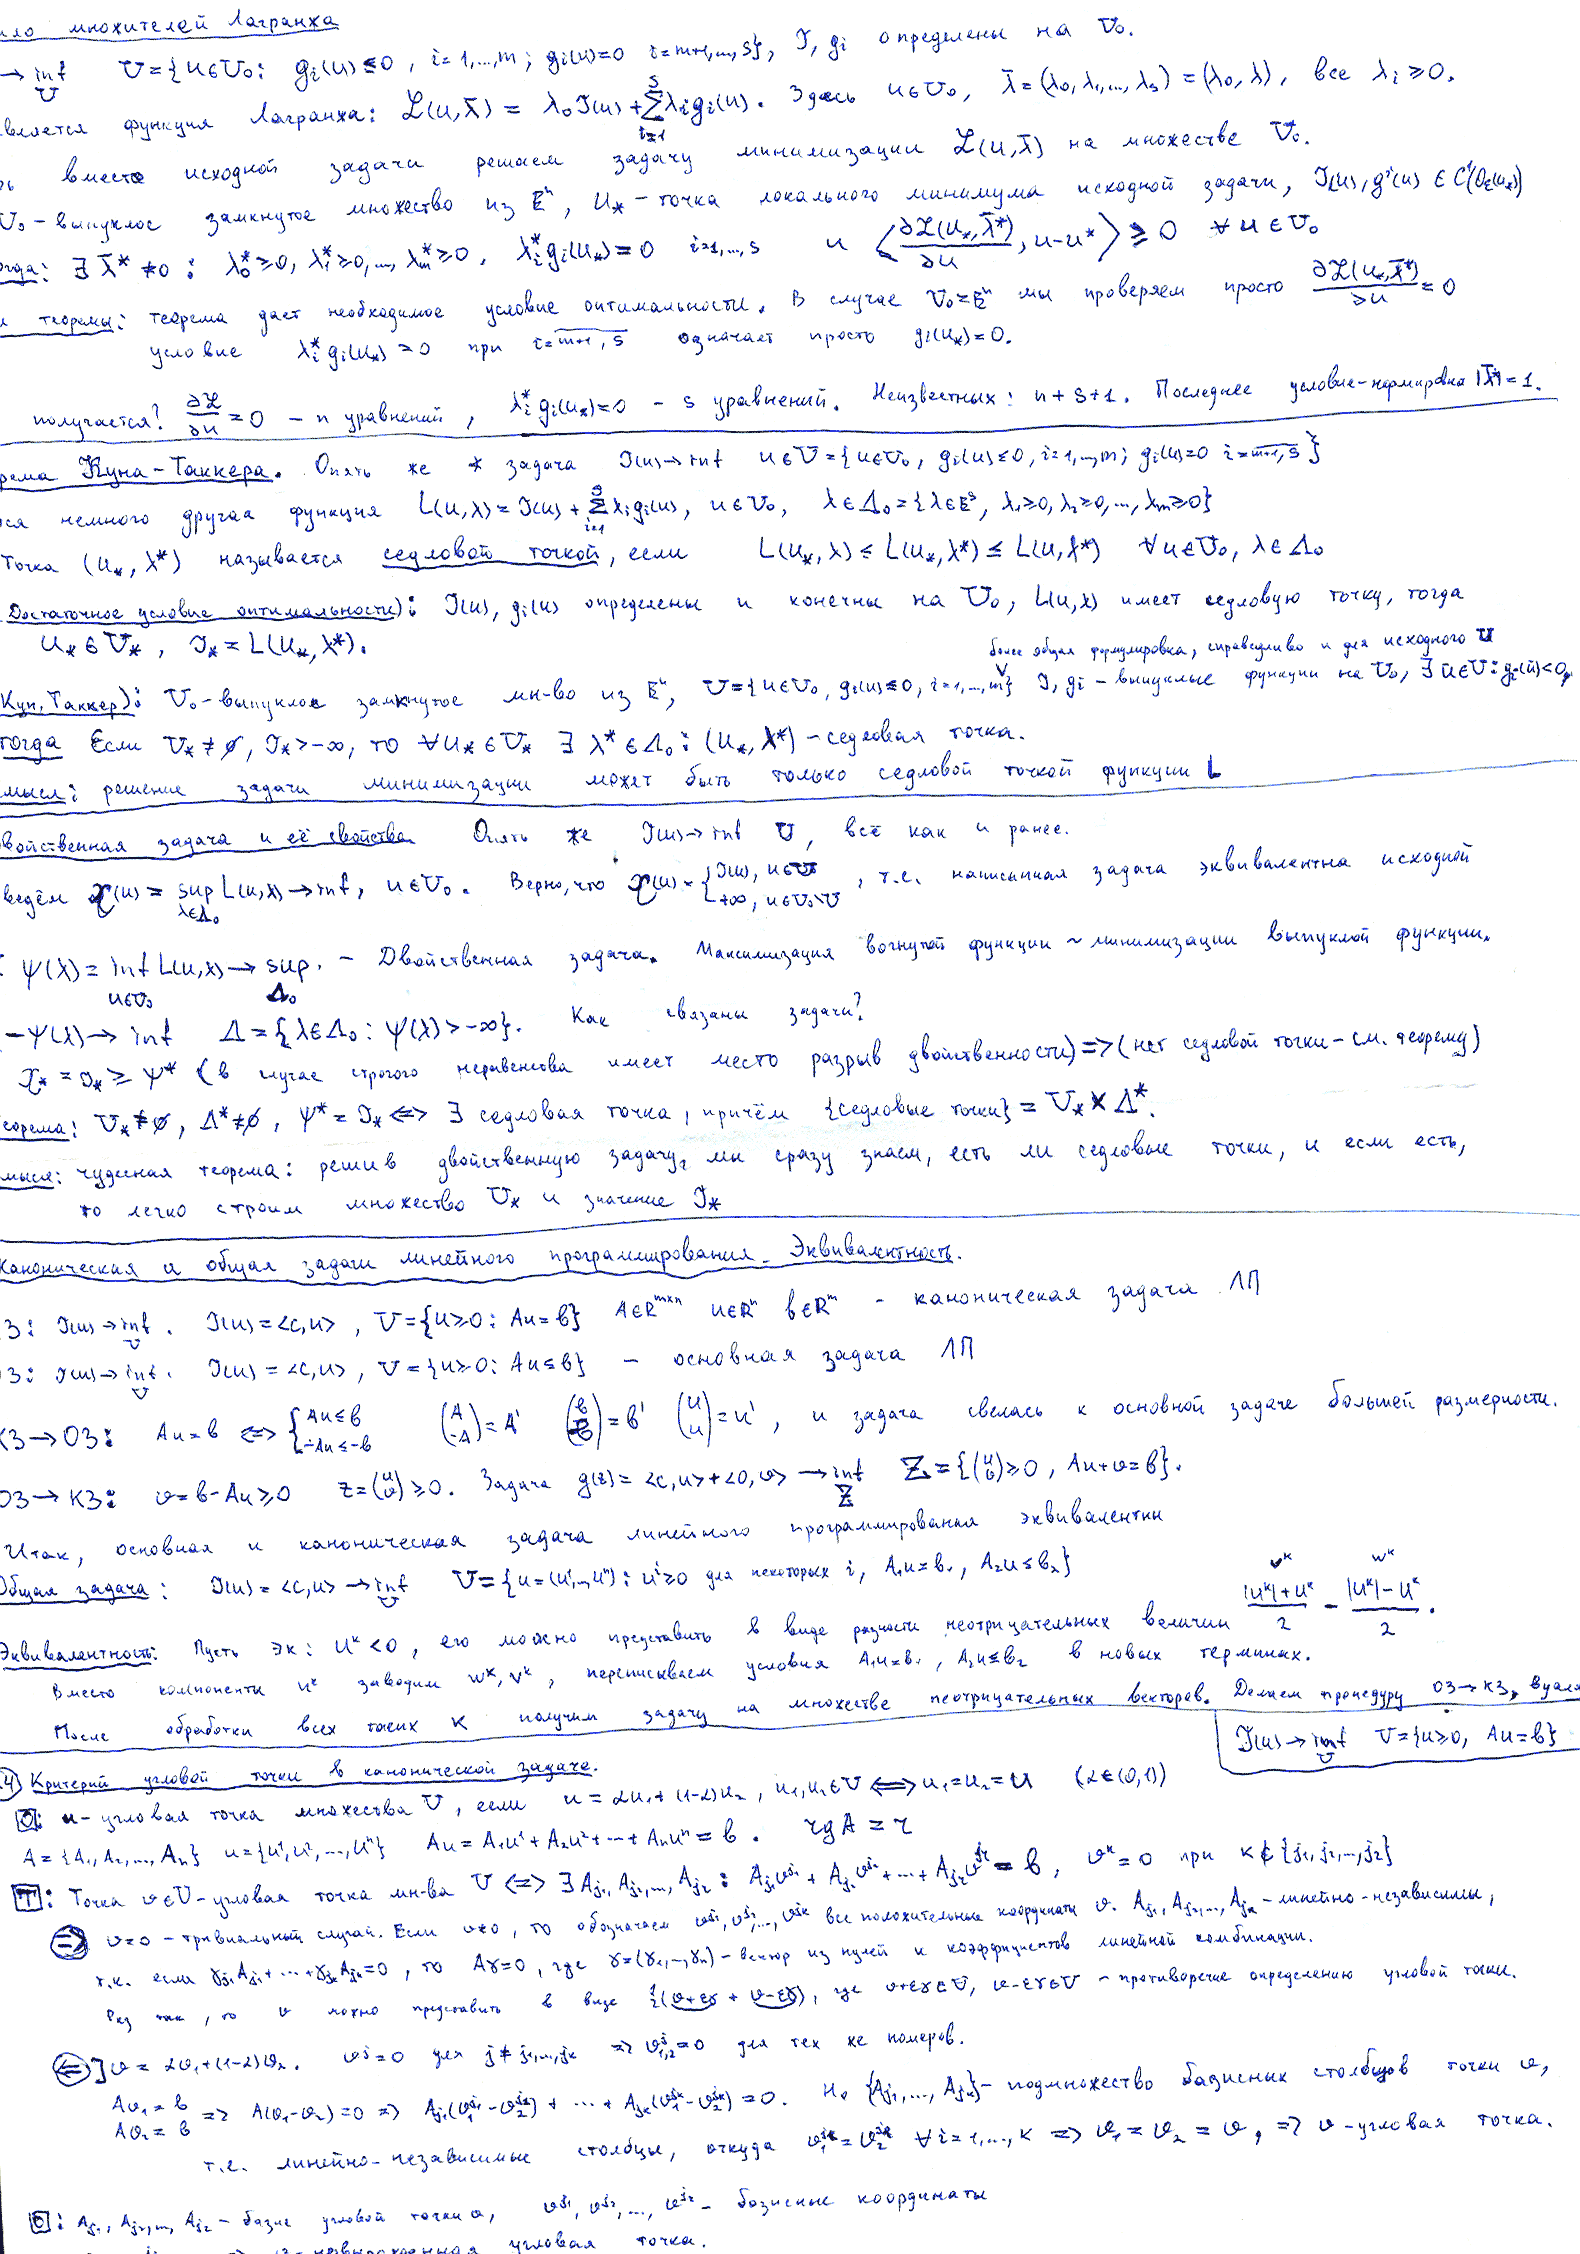 ило множителей Лагранжа
→ inf U U={u∈U₀: gᵢ(u)≤0, i=1,...,m; gᵢ(u)=0 i=m+1,...,s}, J, gᵢ определены на U₀.
вляется функция Лагранжа: ℒ(u,λ̄) = λ₀J(u)+∑ᵢ₌₁ˢλᵢgᵢ(u). Здесь u∈U₀, λ̄=(λ₀,λ₁,...,λₛ)=(λ₀,λ), все λᵢ≥0.
рь вместо исходной задачи решаем задачу минимизации ℒ(u,λ̄) на множестве U₀.
U₀-выпуклое замкнутое множество из Eⁿ, u*-точка локального минимума исходной задачи, J(u), gⁱ(u) ∈ C¹(Oε(u*))
огда: ∃ λ̄* ≠0: λ₀*≥0, λ₁*≥0,..., λₘ*≥0, λᵢ*gᵢ(u*)=0 i=1,...,s и ⟨∂ℒ(u*,λ̄*)/∂u, u-u*⟩ ≥ 0 ∀u∈U₀
л теоремы: теорема дает необходимое условие оптимальности. В случае U₀=Eⁿ мы проверяем просто ∂ℒ(u*,λ̄*)/∂u = 0
условие λᵢ*gᵢ(u*)=0 при i=m+1,s означает просто gᵢ(u*)=0.
получается? ∂ℒ/∂u=0 – n уравнений, λᵢ*gᵢ(u*)=0 – s уравнений. Неизвестных: n+s+1. Последнее условие-нормировка |λ̄*|=1.
рема Куна-Таккера. Опять же задача J(u)→inf u∈U={u∈U₀, gᵢ(u)≤0, i=1,...,m; gᵢ(u)=0 i=m+1,s}
ся немного другая функция L(u,λ)=J(u)+∑ᵢ₌₁ˢλᵢgᵢ(u), u∈U₀, λ∈Λ₀={λ∈Eˢ, λ₁≥0, λ₂≥0,..., λₘ≥0}
Точка (u*,λ*) называется седловой точкой, если L(u*,λ) ≤ L(u*,λ*) ≤ L(u,λ*) ∀u∈U₀, λ∈Λ₀
Достаточное условие оптимальности): J(u), gᵢ(u) определены и конечны на U₀, L(u,λ) имеет седловую точку, тогда
u*∈U*, J*=L(u*,λ*).
более общая формулировка, справедливо и для исходного U
Кун,Таккер): U₀-выпуклое замкнутое мн-во из Eⁿ, U={u∈U₀, gᵢ(u)≤0, i=1,...,m} J, gᵢ – выпуклые функции на U₀, ∃ū∈U: gᵢ(ū)<0,
тогда Если U*≠∅, J*>-∞, то ∀u*∈U* ∃λ*∈Λ₀: (u*,λ*)-седловая точка.
мысл: решение задачи минимизации может быть только седловой точкой функции L
войственная задача и её свойства Опять же J(u)→inf U, всё как и ранее.
ведём χ(u) = sup λ∈Λ₀ L(u,λ)→inf, u∈U₀. Верно, что χ(u)={J(u), u∈U; +∞, u∈U₀\U, т.е. написанная задача эквивалентна исходной
: ψ(λ) = inf u∈U₀ L(u,λ) → sup Λ₀. – Двойственная задача. Максимизация вогнутой функции ~ минимизации выпуклой функции.
-ψ(λ)→ inf Λ={λ∈Λ₀: ψ(λ)>-∞}. Как связаны задачи?
χ*=J*≥ψ* (в случае строгого неравенства имеет место разрыв двойственности)=>(нет седловой точки-см. теорему)
еорема: U*≠∅, Λ*≠∅, ψ*=J* <=> ∃ седловая точка, причём {седловые точки} = U*×Λ*.
мысл: чудесная теорема: решив двойственную задачу, мы сразу знаем, есть ли седловые точки, и если есть,
то легко строим множество U* и значение J*
Каноническая и общая задачи линейного программирования. Эквивалентность.
З: J(u)→inf U. J(u)=<c,u>, U={u≥0: Au=b} A∈Rᵐˣⁿ u∈Rⁿ b∈Rᵐ – каноническая задача ЛП
З: J(u)→inf U. J(u)=<c,u>, U={u≥0: Au≤b} – основная задача ЛП
КЗ→ОЗ: Au=b <=> {Au≤b; -Au≤-b (A -A)=A' (b -b)=b' (u u)=u', и задача свелась к основной задаче большей размерности.
ОЗ→КЗ: v=b-Au≥0 z=(u v)≥0. Задача g(z)=<c,u>+<0,v> → inf Z Z={(u v)≥0, Au+v=b}.
Итак, основная и каноническая задача линейного программирования эквивалентны
Общая задача: J(u)=<c,u>→inf U U={u=(u¹,...,uⁿ): uⁱ≥0 для некоторых i, A₁u=b₁, A₂u≤b₂}
Эквивалентность: Пусть ∃k: uᵏ<0, его можно представить в виде разности неотрицательных величин (|uᵏ|+uᵏ)/2 vᵏ - (|uᵏ|-uᵏ)/2 wᵏ.
Вместо компоненты uᵏ заводим wᵏ,vᵏ, переписываем условия A₁u=b₁, A₂u≤b₂ в новых терминах.
После обработки всех таких k получим задачу на множестве неотрицательных векторов. Делаем процедуру ОЗ→КЗ, вуаля
J(u)→inf U U={u≥0, Au=b}
4) Критерий угловой точки в канонической задаче.
О: u- угловая точка множества U, если u=αu₁+(1-α)u₂, u₁,u₂∈U <=> u₁=u₂=u (α∈(0,1))
A={A₁,A₂,...,Aₙ} u={u¹,u²,...,uⁿ} Au=A₁u¹+A₂u²+...+Aₙuⁿ=b. rgA=r
Т: Точка v∈U-угловая точка мн-ва U <=> ∃Aj₁,Aj₂,...,Ajᵣ: Aj₁vʲ¹+Aj₂vʲ²+...+Ajᵣvʲʳ=b, vᵏ=0 при k∉{j₁,j₂,...,jᵣ}
=> v=0 – тривиальный случай. Если v≠0, то обозначаем vʲ¹,vʲ²,...,vʲᵏ все положительные координаты v. Aj₁,Aj₂,...,Ajₖ-линейно-независимы,
т.к. если γj₁Aj₁+...+γjₖAjₖ=0, то Aγ=0, где γ=(γ₁,...,γₙ)-вектор из нулей и коэффициентов линейной комбинации.
Раз так, то v можно представить в виде ½(v+εγ + v-εγ), где v+εγ∈U, v-εγ∈U – противоречие определению угловой точки.
<= ]v=αv₁+(1-α)v₂. vʲ=0 для j≠j₁,...,jₖ => vʲ₁,₂=0 для тех же номеров.
Av₁=b Av₂=b => A(v₁-v₂)=0 => Aj₁(v₁ʲ¹-v₂ʲ¹)+...+Ajₖ(v₁ʲᵏ-v₂ʲᵏ)=0. Но {Aj₁,...,Ajₖ}-подмножество базисных столбцов точки v,
т.е. линейно-независимые столбцы, откуда v₁ʲⁱ=v₂ʲⁱ ∀i=1,...,k => v₁=v₂=v, => v-угловая точка.
О: Aj₁,Aj₂,...,Ajᵣ – базис угловой точки v, vʲ¹,vʲ²,...,vʲʳ- базисные координаты
невырожденная угловая точка.